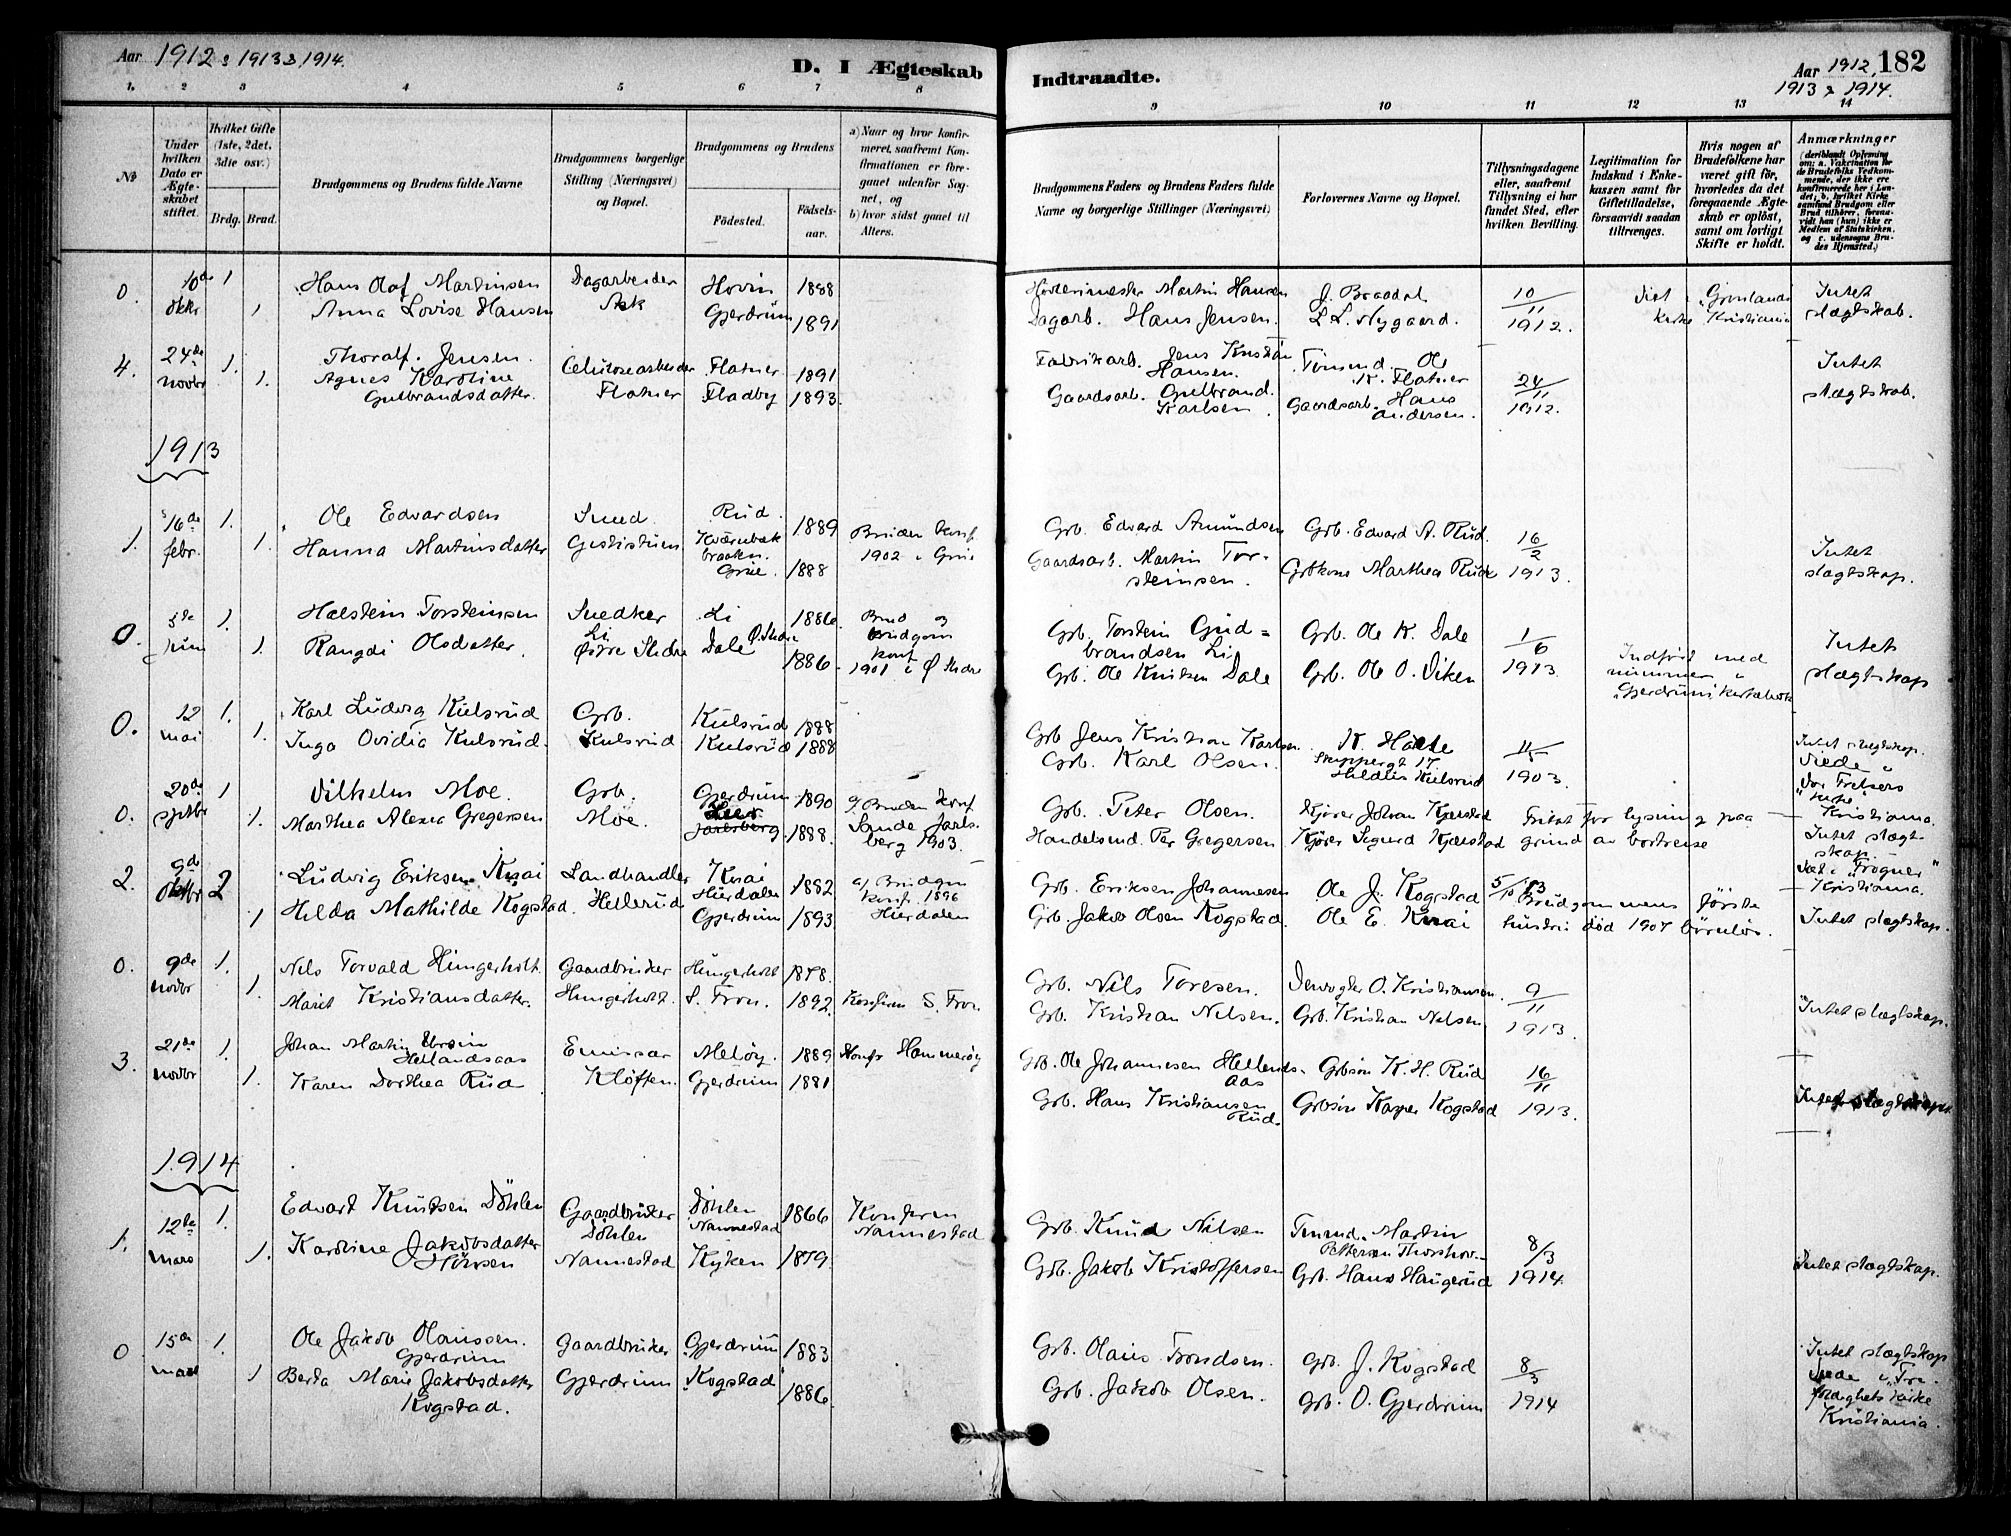 Aar 1912, 1913 & 1914.
D. I Ægteskab
Indtraadte.
Aar 1912, 182
1913 & 1914.
1. 2 3 4 5 6 7 8 9 10 11 12 13 14
№
Under hvilken Dato er Ægteskabet stiftet.
Hvilket Gifte (1ste, 2det, 3die osv.)
Brdg. Brud.
Brudgommens og Brudens fulde Navne
Brudgommens borgerlige Stilling (Næringsvei) og Bopæl.
Brudgommens og Brudens
Fødested.
Fødselsaar.
a) Naar og hvor konfirmeret, saafremt Konfirmationen er foregaaet udenfor Sognet, og
b) hvor sidst gaaet til Alters.
Brudgommens Faders og Brudens Faders fulde Navne og borgerlige Stillinger (Næringsvei)
Forlovernes Navne og Bopæl.
Tillysningsdagene eller, saafremt Tillysning ei har fundet Sted, efter hvilken Bevilling.
Legitimation for Indskud i Enkekassen samt for Giftetilladelse, forsaavidt saadan tiltrænges.
Hvis nogen af Brudefolkene har været gift før, hvorledes da det foregaaende Ægteskab er opløst, samt om lovligt Skifte er holdt.
Anmærkninger
0. 10de oktr 1 Hans Olaf Martinsen Dagarbeider Hovin 1888 Martin Hansen J. Braadal 10/11 1912. Viet i Grønlands kirke Kristiania Intet slægtskab.
1 Anna Lovise Hansen Ask Gjerdrum 1891 Dagarb. Hans Jensen. L. L. Nygaard.
4. 24de novbr 1. Thoralf Jensen. Celulosearbeider Flatner 1891 Fabrikarb. Jens Kristian Hansen. Tømmd. Ole K. Flatner 24/11 1912. Intet slægtskab.
1. Agnes Karoline Gulbrandsdatter. Flatner Fladby 1893. Gaardsarb. Gulbrand Karlsen. Gaardsarb. Hans Andersen.
1913
1. 16de febr. 1. Ole Edvardsen Smed. Rud. 1889 Grb. Edvard Amundsen Grb. Edvard A. Rud. 16/2 1913. Intet slægtskap.
1. Hanna Martinsdatter Kværnbakbraaten. Grue. 1888 Bruden konf. 1902 i Grue Gaardsarb. Martin Torsteinsen. Grbkone Marthea Rud
0. juni 1. Halstein Torsteinsen Snedker Li 1886. Brud og brudgom konf. 1901 i Ø. Slidre Grb. Torstein Gudbrandsen Li Grb. Ole K. Dale 1/6 1913 Indført med nummer i Gjerdrum Intet slægtskap
1. Rangdi Olsdatter. Li Østre Slidre Dale Ø. Slidre 1886. Grb. Ole Knutsen Dale Grb. Ole O. Viken
0. 12 mai 1. Karl Ludvig Kulsrud Grb. Kulsrud 1888 Grb Jens Kristian Karlsen K. Holte Skippergt 17. 11/5 1903. Intet slægtskap. Viede i Vor Frelsers kirke Kristiania.
1. Inga Ovidia Kulsrud. Kulsrud Kulsrud 1888 Grb. Karl Olsen. Kulsrud
0. 20de 1 Vilhelm Moe. Grb. Gjerdrum 1890 a) Bruden konf. Sande Jarlsberg 1903. Grb. Peter Olsen. Kjører Johan Kjelstad Fritat for lysning paa grund av bortreise Intet slægtskap. Viet i "Frogner" Kristiania.
1. Marthea Alexia Gregersen Moe. Jarlsberg 1888. Handelsmd. Per Gregersen Kjører Sigurd Kjelstad
2. 9de oktbr 2 Ludvig Eriksen Knai Landhandler Knai Hurdalen 1882 a) Brudgom konf. 1896 Hurdalen Grb. Eriksen Johannesen Ole J. Kogstad 5/10 13 Brudgommens første hustru død 1907 barnløs. Intet slægtskap.
1 Hilda Mathilde Kogstad. Hellerud Gjerdrum 1893 Grb. Jakob Olsen Kogstad. Ole E. Knai
0. 9de novbr 1. Nils Torvald Hungerholt. Gaardbruker Hungerholt 1878. Grb. Nils Toresen. O. Kristiansen. 9/11 1913. Intet slægtskap.
1. Marit Kristiansdatter. Hungerholt. S. Fron. 1892. Konfirm S. Fron. Grb. Kristian Nilsen. Grb. Kristian Nilsen
3. 21de novbr 1. Johan Martin Ursin Hellandsaas Emissær Meløy. 1889 Konf. Hammerøy Grb. Ole Johannesen Hellandsaas Grbsøn K. H. Rud 16/11 1913. Intet slægtskap.
1. Karen Dorthea Rud Kløften. Gjerdrum 1881 Grb. Hans Kristiansen Rud. Grbsøn Kasper Kogstad
1914
1. 12te mars 1. Edvart Knutsen Döhlen Gaardbruker Döhlen Döhlen Nannestad 1866 Konfirm Nannestad Grb. Knud Nilsen Tømmd. Martin Pettersen Thorshov 8/3 1914 Intet slægtskap.
1. Karoline Jakobsdatter Nannestad Kyken 1879. Grb. Jakob Kristoffersen Grb. Hans Haugerud
0 15de mars 1. Ole Jakob Olaussen. Gjerdrum Gaardbruker Gjerdrum 1883 Grb. Olaus Trondsen. Grb. J. Kogstad 8/3 1914 Intet slægtskap Viede i "Trefoldighets kirke Kristiania.
1 Berta Marie Jakobsdatter Kogstad. Gjerdrum Kogstad 1886 Grb. Jakob Olsen. Grb. O. Gjerdrum